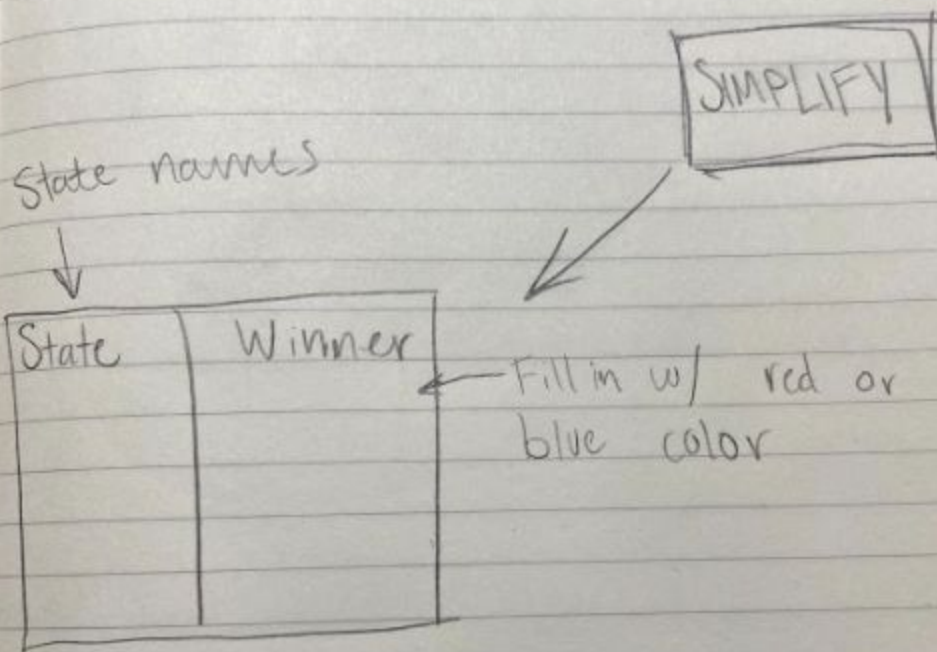 SIMPLIFY
State names
State
Winner
Fill in w/ red or
blue color